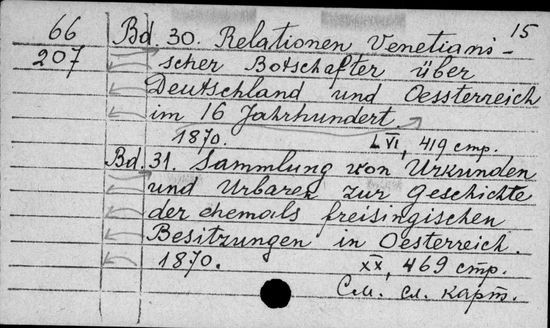 66 Bd. 30. Relationen Venetiani- 15
207 scher Botschafter über
Deutschland und Oessterreich
im 16 Jahrhundert.
1870. LVI, 419 стр.
Bd. 31. Sammlung von Urkunden
und Urbaren zur Geschichte
der ehemals freisingischen
Besitzungen in Oesterreich.
1870. XX, 469 стр.
См. сл. карт.